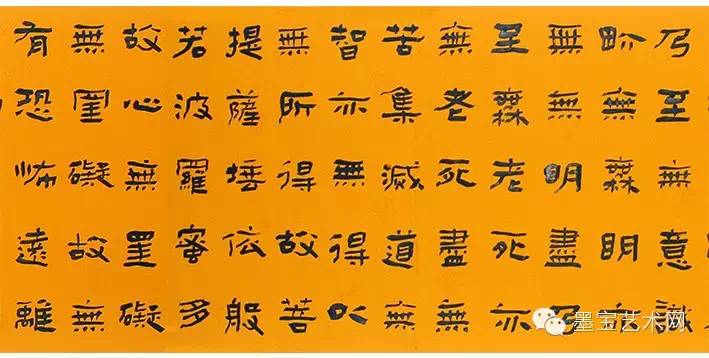 乃至無意識
畍無無明亦
無無明盡乃
至無老死亦
無老死盡無
苦集滅道無
智亦無得以
無所得故菩
提薩埵依般
若波羅蜜多
故心無罣礙
無罣礙故無
有恐怖遠離
墨宝艺术网